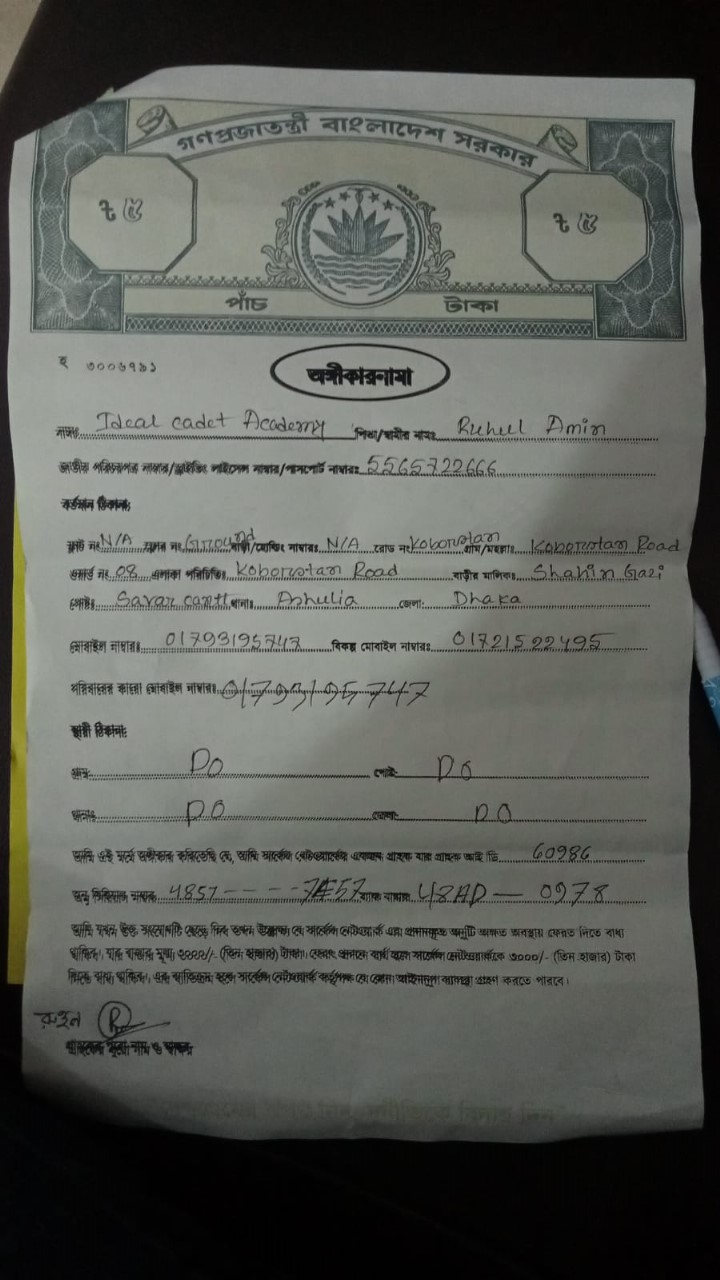 গণপ্রজাতন্ত্রী বাংলাদেশ সরকার
৳ ৫ ৳ ৫
পাঁচ টাকা
হ ৩০০৬৭৯১
অঙ্গীকারনামা
নামঃ Ideal cadet Academy পিতা/স্বামীর নামঃ Ruhul Amin
জাতীয় পরিচয়পত্র নাম্বার/ড্রাইভিং লাইসেন্স নাম্বার/পাসপোর্ট নাম্বারঃ 5565722666
বর্তমান ঠিকানা:
ফ্ল্যাট নং N/A ফ্লোর নং Ground বাড়ী/হোল্ডিং নাম্বারঃ N/A রোড নং Koborstan গ্রাম/মহল্লাঃ Koborstan Road
ওয়ার্ড নং 08 এলাকা পরিচিতিঃ Koborstan Road বাড়ীর মালিকঃ Shahin Gazi
পোষ্টঃ Savar cantt থানাঃ Ashulia জেলা: Dhaka
মোবাইল নাম্বারঃ 01793195747 বিকল্প মোবাইল নাম্বারঃ 01721522495
পরিবারের কারো মোবাইল নাম্বারঃ 01793195747
স্থায়ী ঠিকানা:
গ্রাম: DO পোষ্ট: DO
থানাঃ DO জেলা: DO
আমি এই মর্মে অঙ্গীকার করিতেছি যে, আমি সার্কেল নেটওয়ার্কের একজন গ্রাহক যার গ্রাহক আই ডি 60986
অনু সিরিয়াল নাম্বার 4857---- 7E57 ম্যাক নাম্বার 48AD — 0978
আমি যখন উক্ত সংযোগটি ছেড়ে দিব তখন উল্লেখ্য যে সার্কেল নেটওয়ার্ক এর প্রদানকৃত অনুটি অক্ষত অবস্থায় ফেরত দিতে বাধ্য
থাকিব, যার বাজার মূল্য ৩০০০/- (তিন হাজার) টাকা। ফেরৎ প্রদানে ব্যর্থ হলে সার্কেল নেটওয়ার্ককে ৩০০০/- (তিন হাজার) টাকা
দিতে বাধ্য থাকিব। এর ব্যতিক্রম হলে সার্কেল নেটওয়ার্ক কর্তৃপক্ষ যে কোন আইনানুগ ব্যবস্থা গ্রহণ করতে পারবে।
রুহুল
গ্রাহকের পুরো নাম ও স্বাক্ষর